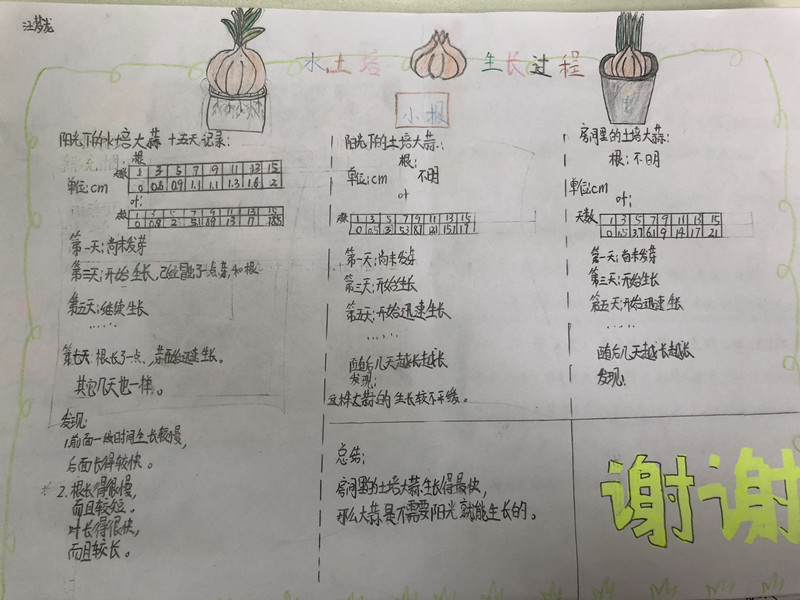 水土培 生长过程
小根
阳光下的水培大蒜 十五天记录:
根
天数 1 3 5 7 9 11 13 15
单位:cm 0 0.6 0.9 1.1 1.1 1.3 1.6 2
叶:
天数 1 3 5 7 9 11 13 15
第一天:尚未发芽
第五天:继续生长
……
第七天:根长了一点、
其它几天也一样。
发现:
1.前面一段时间生长较慢,
后面长得较快。
2.根长得很慢,
而且较短。
叶长得很快,
而且较长。
阳光下的土培大蒜:
根:
单位:cm 不明
叶
1 3 5 7 9 11 13 15
第一天:尚未发芽
第三天:开始生长
第五天:开始迅速生长
……
随后几天越长越长
发现:
这株大蒜的生长较不平缓。
房间里的土培大蒜:
根:不明
单位:cm
叶:
天数 1 3 5 7 9 11 13 15
0 1.5 3.7 6.1 9 14 17 21
第一天:尚未发芽
第三天:开始生长
第五天:开始迅速生长
……
随后几天越长越长
发现:
总结:
房间里的土培大蒜生长得最快,
那么大蒜是不需要阳光就能生长的。
谢谢